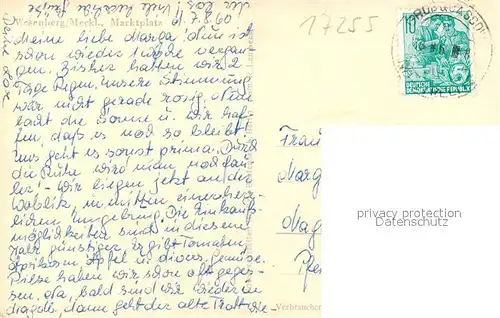 17255
Wesenberg/Meckl., Marktplatz
d. 7.8.60
Meine liebe Marga! Nun ist
schon wieder 1 Woche vergan-
gen. Bisher hatten wir 2
Tage Regen, unsere Stimmung
war nicht gerade rosig. Nun
lacht die Sonne u. wir hof-
fen, daß es noch so bleibt.
Uns geht es sonst prima. Durch
die Ruhe wird man noch fau-
ler! - Wir liegen jetzt an der
Woblitz, inmitten einer herr-
lichen Umgebung. Die Einkaufs-
möglichkeiten sind in diesem
Jahr günstiger, es gibt Tomaten
Aprikosen, Äpfel in divers. Gemüse.
Pilze haben wir schon oft geges-
sen. Na, bald sind wir wieder in
dann geht der alte Trott wie
Deine
10
DEUTSCHE
DEMOKRATISCHE REPUBLIK
Frau
Marg
Mag
privacy protection
watermark
Verbraucher